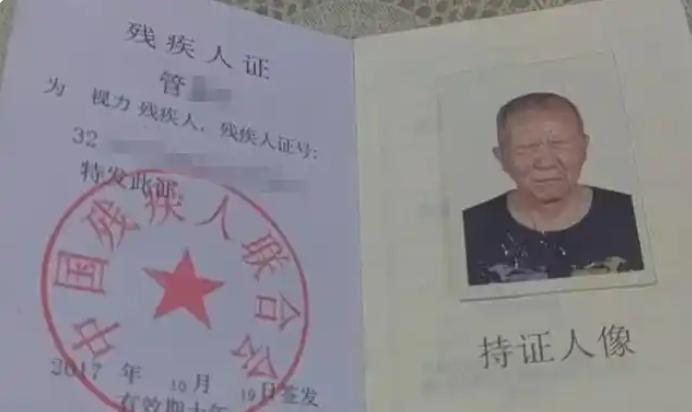 残疾人证
管
为 视力 残疾人，残疾人证号：
32
特发此证。
中国残疾人联合会
2017 年 10月 19日签发
有效期十年
持证人像